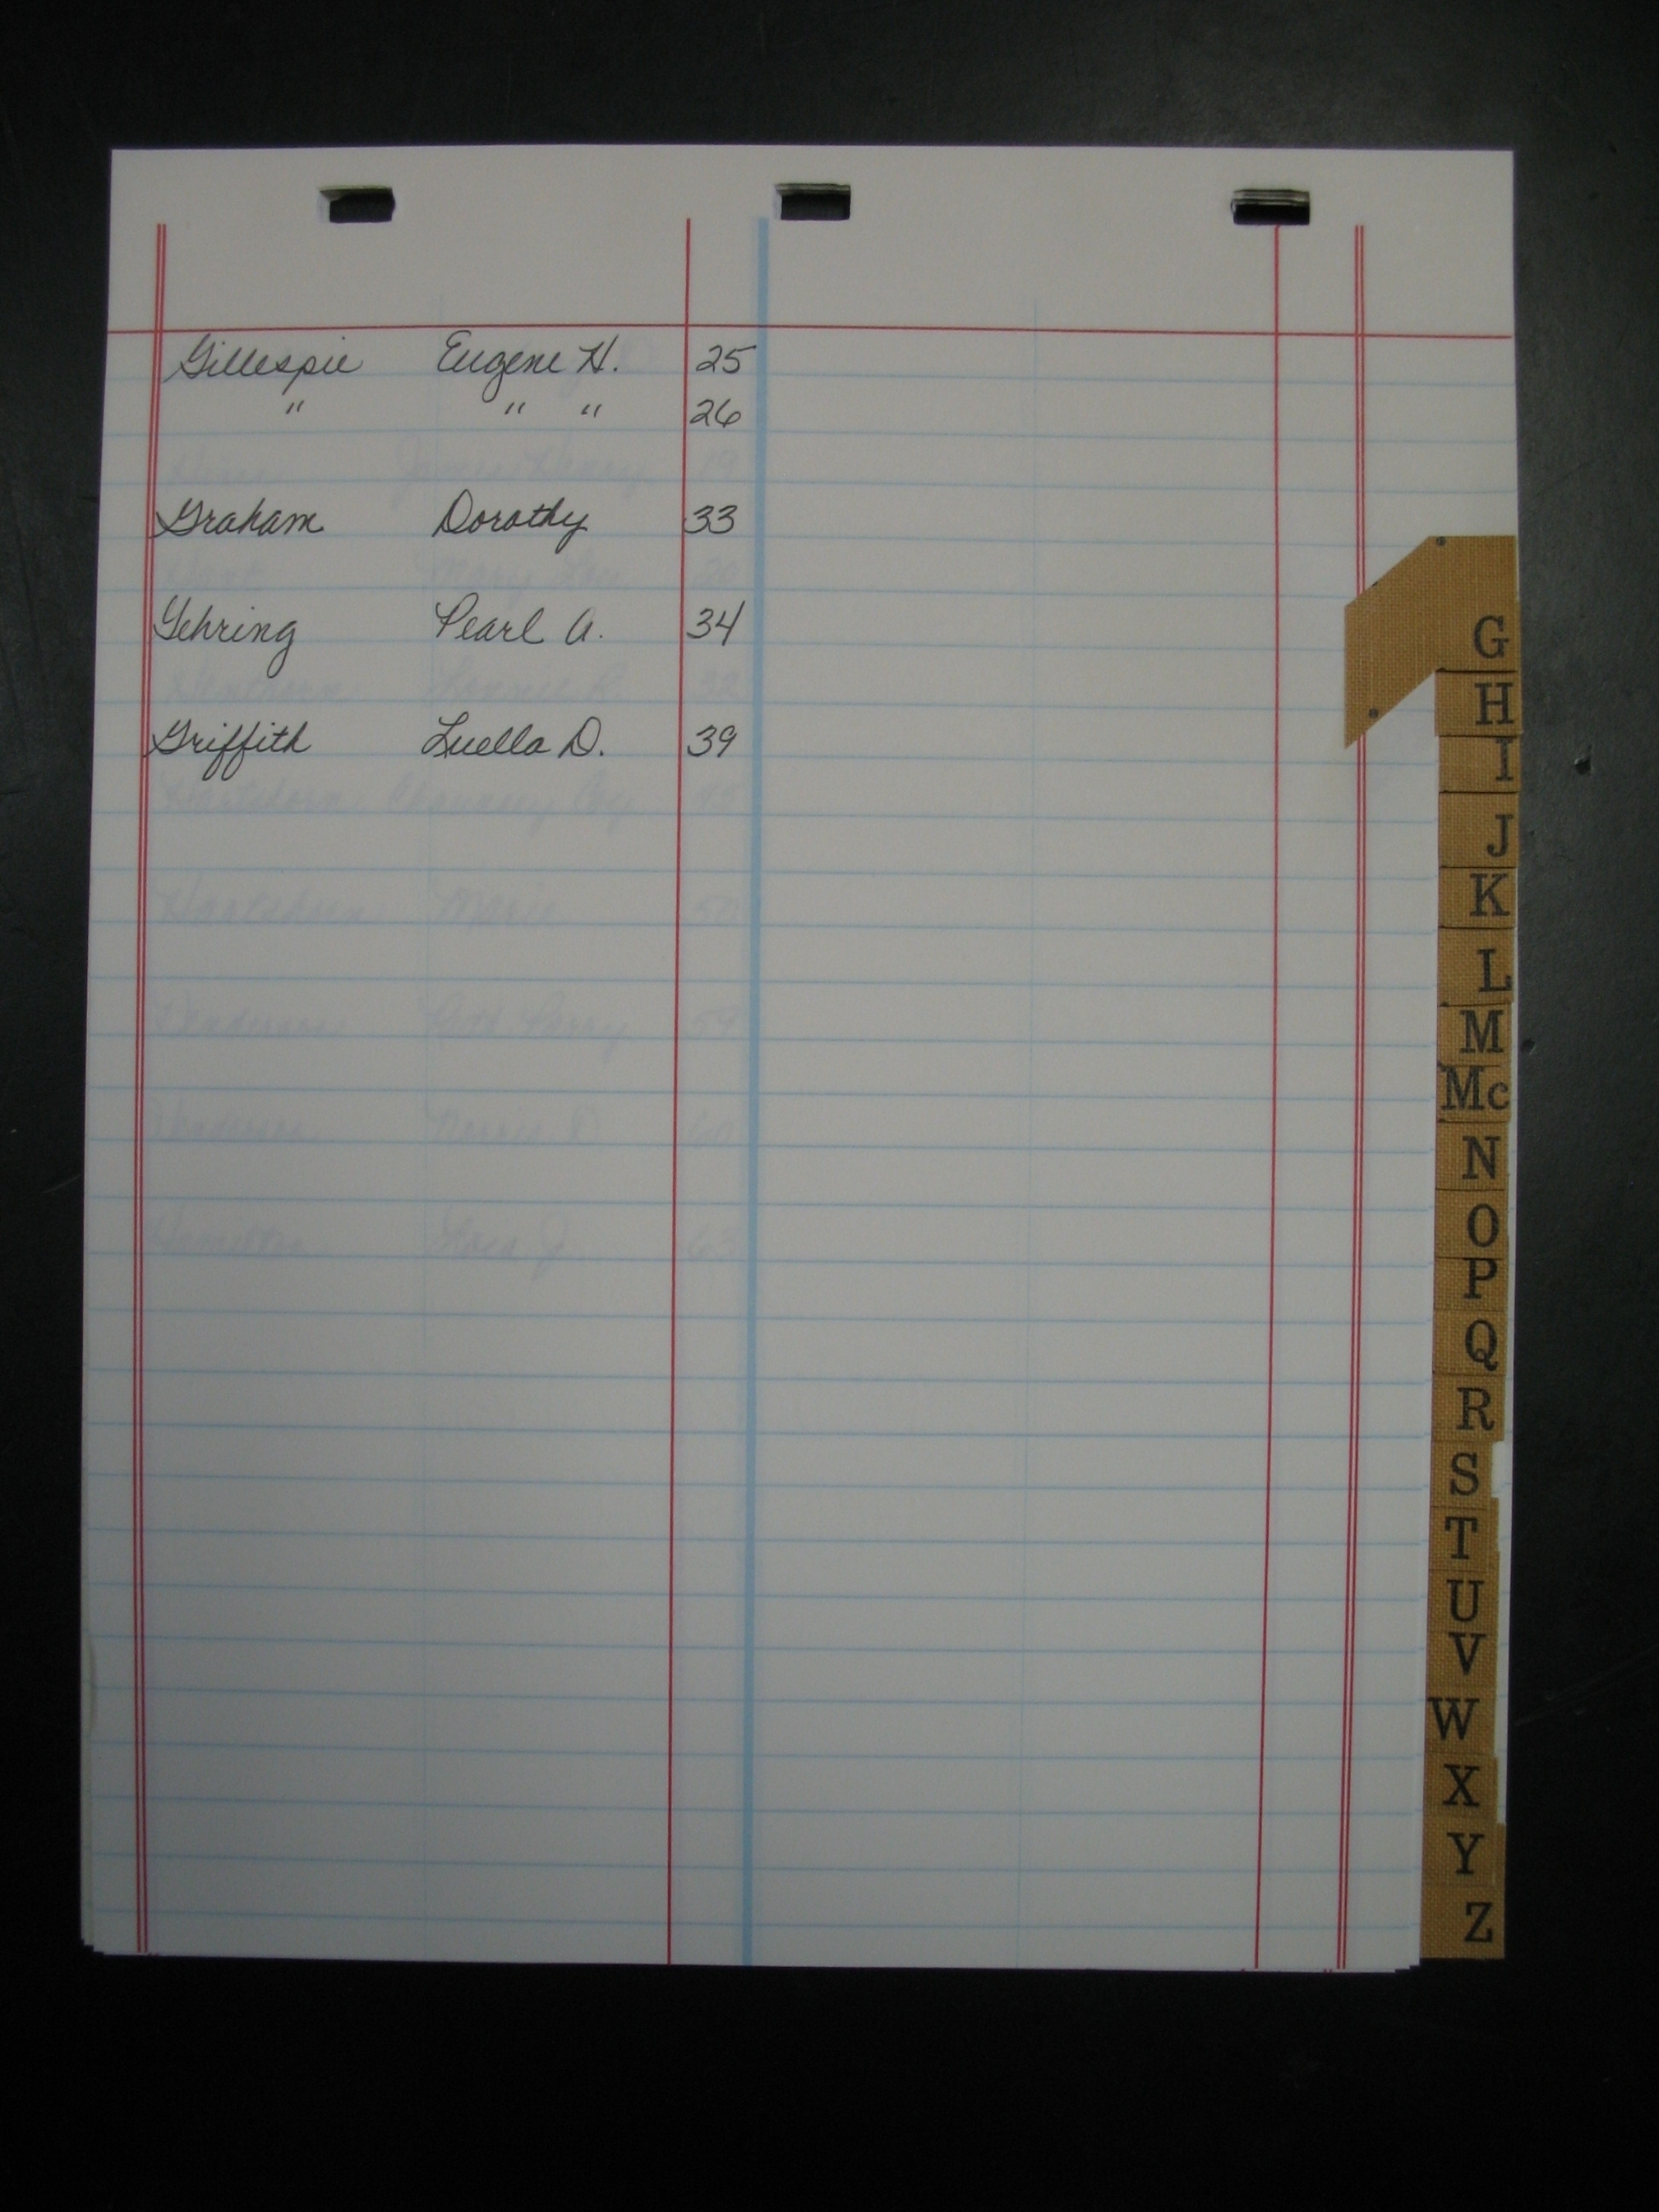 Gillespie Eugene H. 25
" " " 26
Graham Dorothy 33
Gehring Pearl A. 34
Griffith Luella D. 39
G
H
I
J
K
L
M
Mc
N
O
P
Q
R
S
T
U
V
W
X
Y
Z